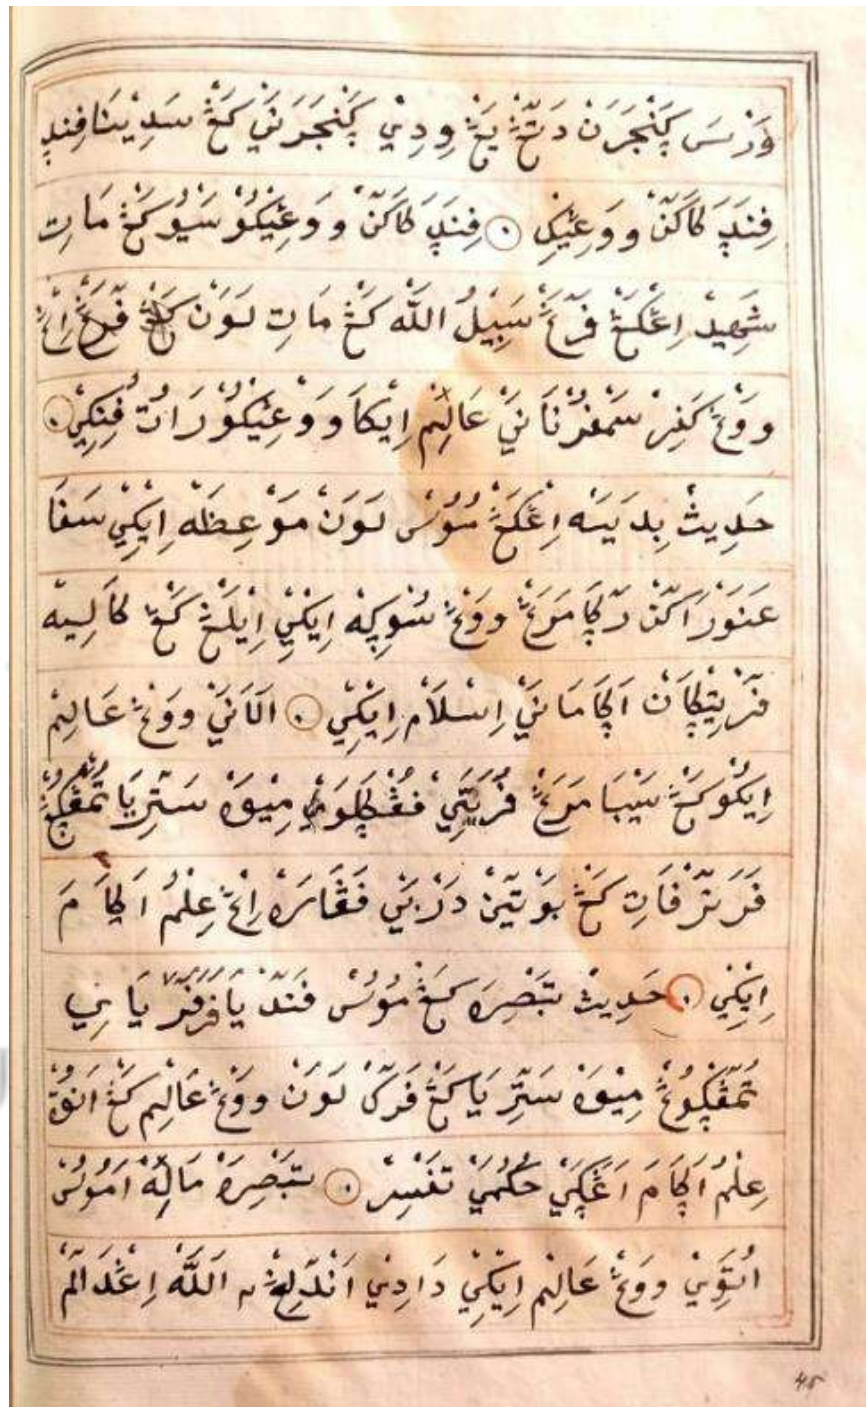 وَرْسَ ڮَنْجَرَنْ دَتَڠْ يَڠْ وِدِيْ ڮَنْجَرَنَيْ كَڠْ سَدِيْنَا فِنْدٍ
فِنَدَ كَاكَنْ وَوَعِيْكِ ۝ فِنَدَ كَاكَنْ وَوَڠِيْكُوْ سَيُوْ كَڠْ مَاتِ
شَهِيدْ اِڠْكَڠْ فَرَڠْ سَبِيْلُ اللّٰه كَڠْ مَاتِ لَوَنْ فَرَڠْ اِڠْ
وَوَڠْ كَفِرْ سَمْفُرْنَانَيْ عَالِمْ اِيْكَا وَوَڠِيْكُوْ رَاتُ فُنِكِيْ ۝
حَدِيثْ بِدَيَسَه اِڠْكَڠْ مُوُسْ لَوَنْ مَوْعِظَه اِيْكِيْ سَفَا
عَنَوْرَاكَنْ دَڮَا مَرَڠْ وَوَڠْ سُوِڮِهْ اِيْكِيْ اِيْلَڠْ كَڠْ كَالِيهْ
فَرْتِيْڮَانْ اَڮَامَانَيْ اِسْلَامْ اِيْكِيْ ۝ اَلَانَيْ وَوَڠْ عَالِمْ
اِيْكُوْ كَڠْ سَيْبَا مَرَڠْ فُرْيَتَيْ فُڠْڮَاوَيْ مِيْوَهْ سَتْرِيَا تُمَڠْڮُوڠْ
فَرَنْتْرَفَاتِ كَڠْ بَوْتَيْنْ دَرْبَيْ فَڠَاسَرَهْ اِڠْ عِلْمُ اَڮَامَ
اِيْكِيْ ۝ حَدِيثْ تَبْصِرَه كَڠْ مُوُسْ فَنَدْيَا فَرْفَرْ يَايِي
تُمَڠْڮُوڠْ مِيْوَهْ سَتْرِيَا كَڠْ فَرَكْ لَوَنْ وَوَڠْ عَالِمْ كَڠْ اَنَوُتْ
عِلْمُ اَڮَامَ اَڠَڮَيْ حُكُمَيْ تَفْسِرْ ۝ تَبْصِرَه مَالِهْ اَمُوُسْ
اُتَوِيْ وَوَڠْ عَالِمْ اِيْكِيْ دَادِيْ اَنْدَلِهْ اَللّٰه اِڠْدَالَمْ